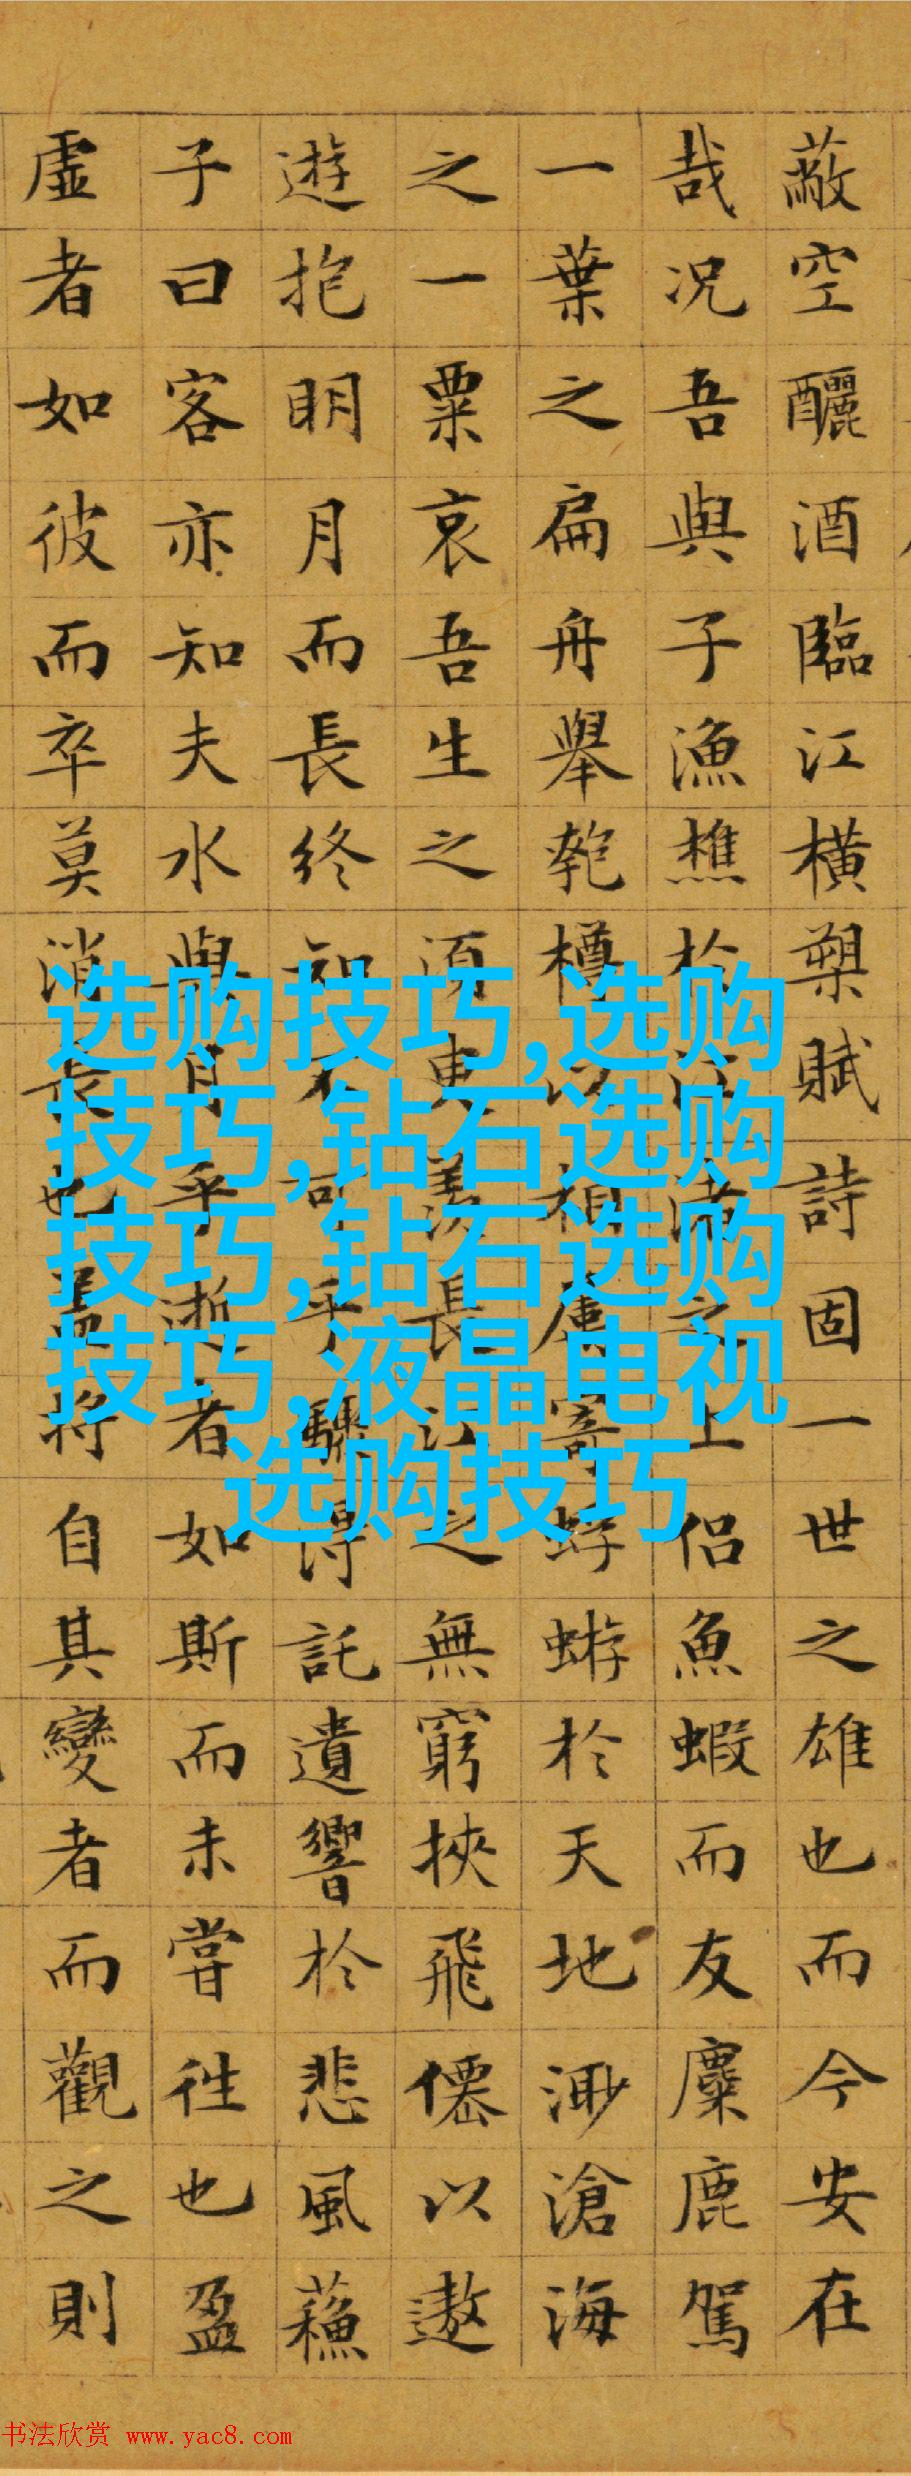 蔽空釃酒臨江橫槊賦詩固一世之雄也而今安在
哉况吾與子漁樵扵江渚之上侶魚蝦而友麋鹿駕
一葉之扁舟舉匏樽以相屬寄蜉蝣扵天地渺滄海
之一粟哀吾生之須臾羨長江之無窮挾飛僊以遨
遊抱明月而長終知不可乎驟得託遺響扵悲風蘓
子曰客亦知夫水與月乎逝者如斯而未嘗往也盈
虛者如彼而卒莫消長也蓋將自其變者而觀之則
选购技巧,选购
技巧,钻石选购
技巧,钻石选购
技巧,液晶电视
选购技巧
书法欣赏 www.yac8.com